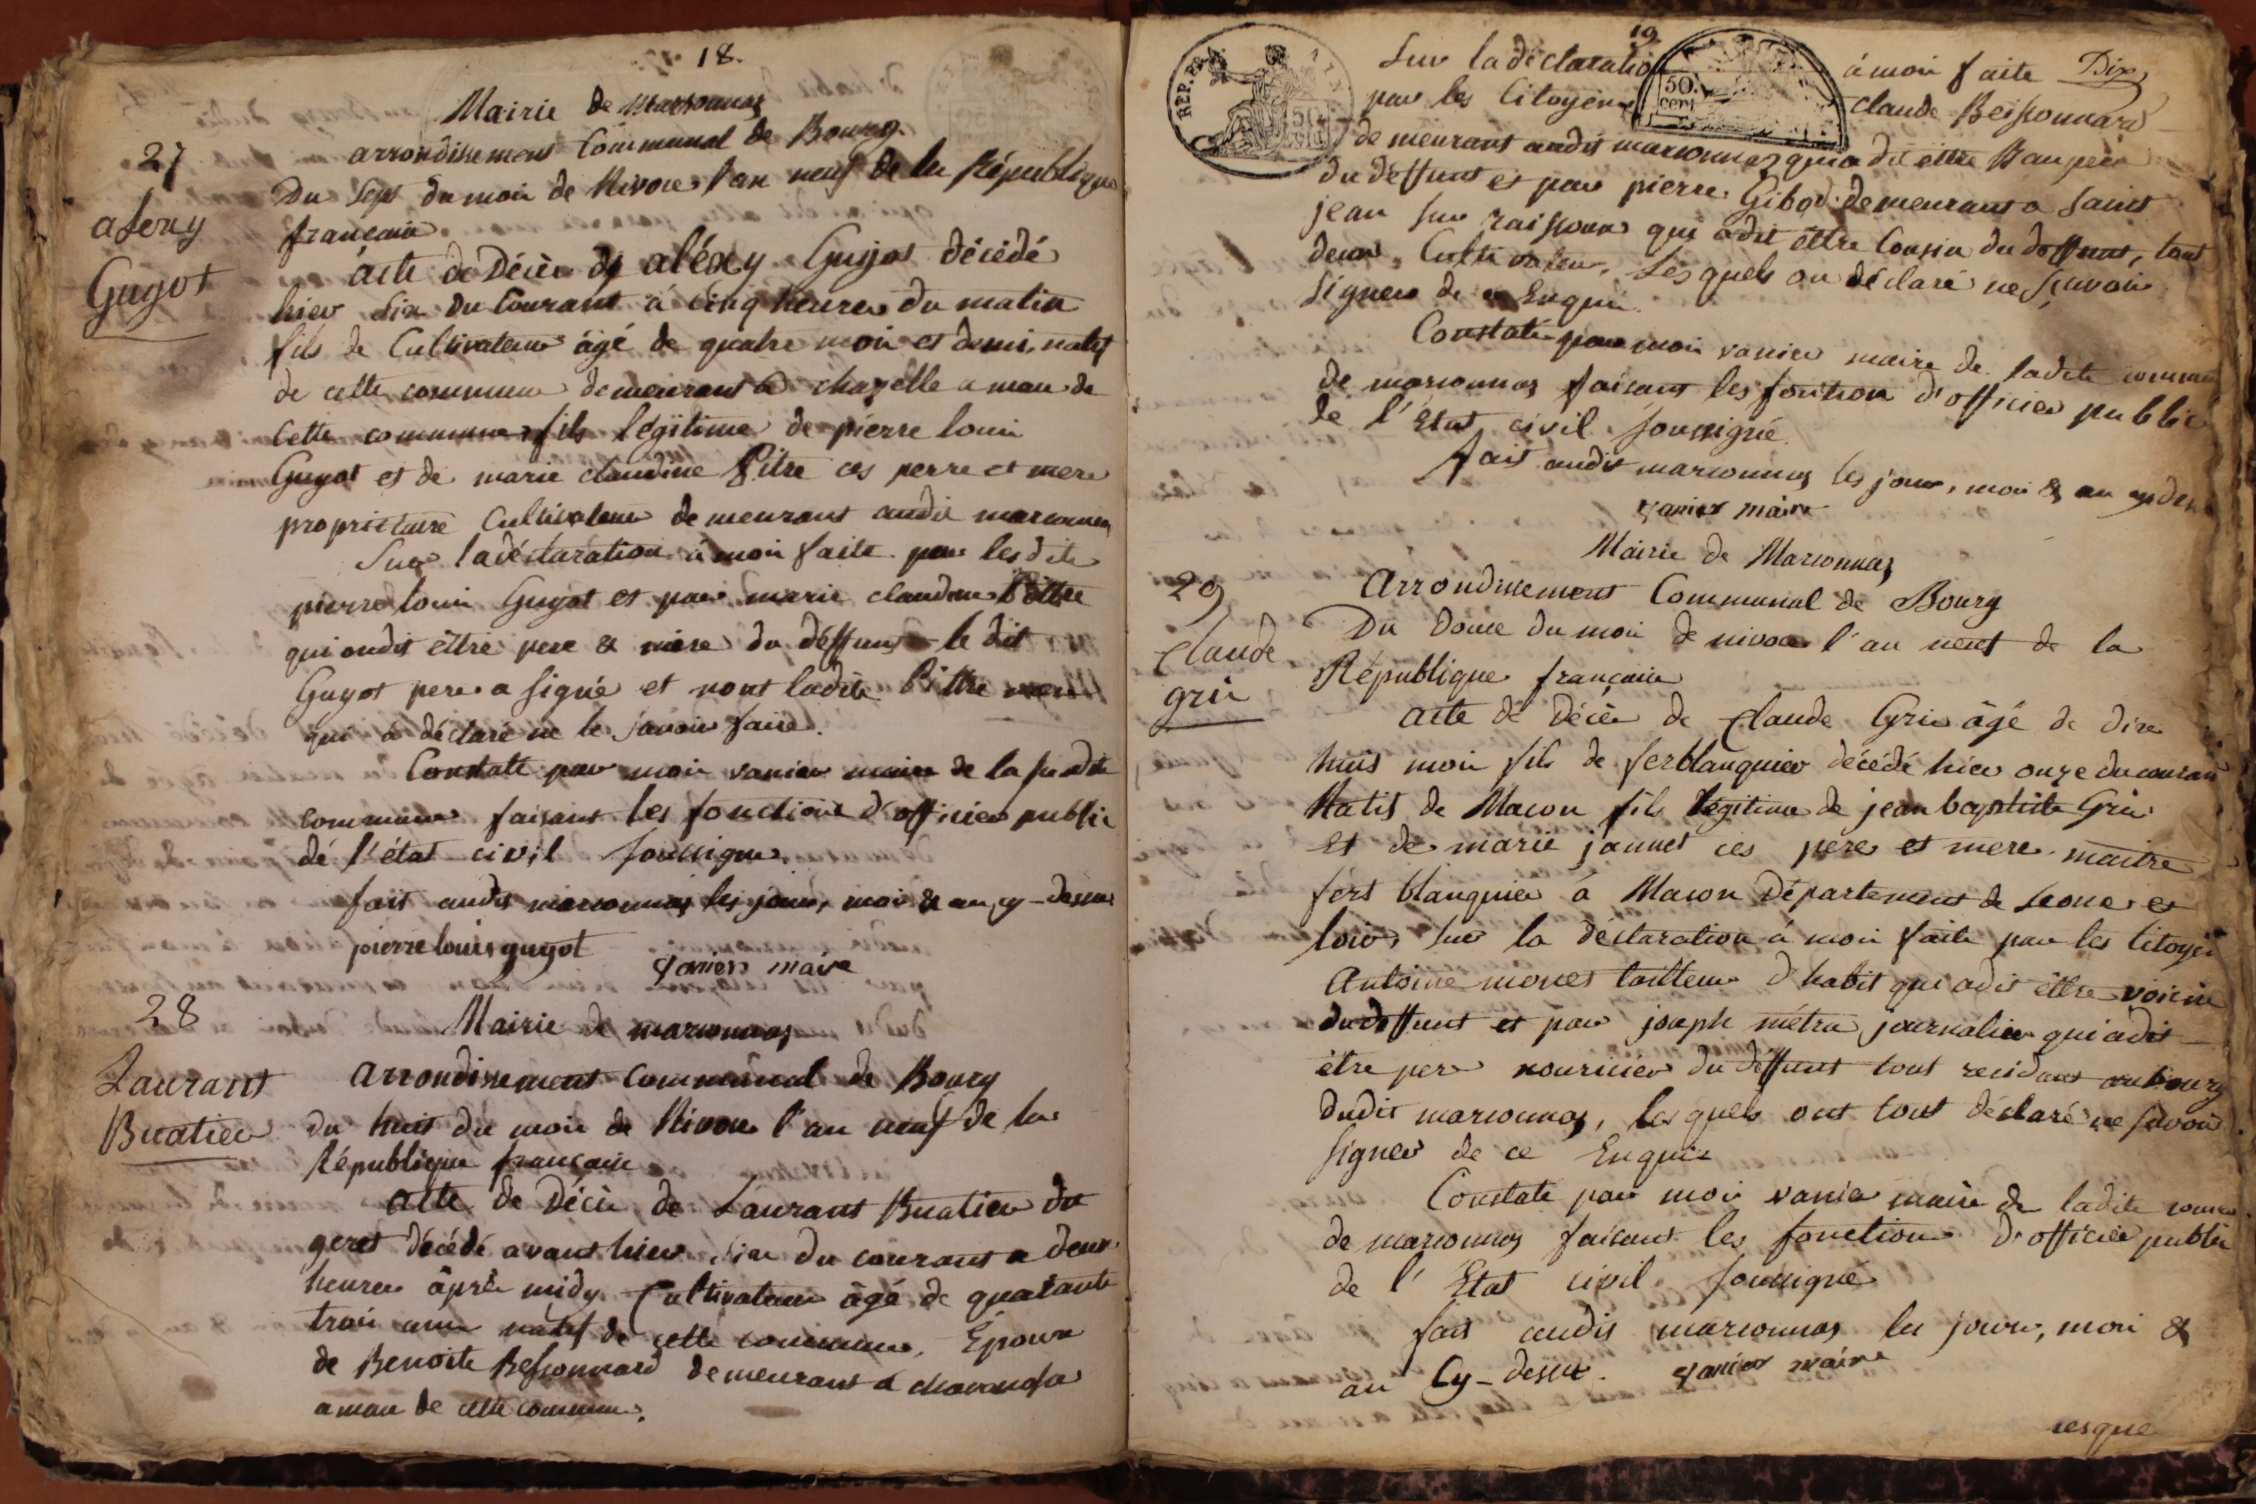 18.
Mairie de marsonnas
arrondissement Communal de Bourg.
27
Du Sept du mois de Nivose l'an neuf de la République
alexy
francaise
Guyot
acte de Décès de aléxy Guyot décédé
hier six du Courant à Cinq heures du matin
fils de Cultivateur âgé de quatre mois et demi, natif
de cette commune demeurant à chazelle a mau de
Cette commune fils légitime de pierre louis
Guyot et de marie claudine Pitre ces perre et mere
propriétaire Cultivateur demeurant audit marsonnas
Sur la déclaration à moi faite par les dits
pierre louis Guyot et par marie claudine Pittre
qui ondit êttre pere & mère du déffunt le dit
Guyot pere a signé et nont ladite Pittre mere
qui a déclaré ne le savoir faire.
Constaté par moi vanier maire de la susdite
commune faisant les fonctions d'officier public
dé l'état civil soussigné.
fait audit marsonnas les jour, mois & an cy-dessus
pierre louis guyot
vanier maire
28
Mairie de marsonnas
Laurant
arrondissement Communal de Bourg
Buatier
du huit du mois de Nivose l'an neuf de la
République francaise
acte de Décès de Laurant Buatier du
geret décédé avant hier six du courant a deux
heures âprès midy Cultivateur âgé de quarante
trois ans natif de cette commune. Epoux
de Benoite Bessonnard demeurant à chavanosse
a mau de cette commune.
19.
Sur la déclaration à moi faite Dix
par les Citoyens Claude Bessonnard
demeurant audit marsonnas qui a dit êttre Beaupere
du déffunt et par pierre Gibod demeurant a Saint
jean sur raissouse qui adit êttre Cousin du deffunt, tout
deux Cultivateur, Les quels on déclaré ne sçavoir
signer de ce Enquis.
Constaté par moi vanier maire de ladite commune
de marsonnas faisant les fontion d'officier public
de l'Etat civil soussigné.
fait audit marsonnas les jour, moi & an cy dessus
vanier maire
Mairie de Marsonnas
29
Arrondissement Communal de Bourg
Claude
Du Douze du moi de nivose l'an neuf de la
gris
République francaise
acte de Décès de Claude Gris âgé de dix
huit moi fils de ferblanquier décédé hier onze du courant
Natif de Macon fils légitime de jean baptiste Gris
et de marie jannet ces pere et mere maitre
fert blanquier à Macon Département de Seone et
loire, sur la déclaration à moi faite par les Citoyen
Antoine monet tailleur d'habit qui adit êttre voisin
du deffunt et par joseph métra journalier qui adit
être pere nourricier du déffunt tout residant au bourg
dudit marsonnas, les quels ont tout déclaré ne savoir
signer de ce Enquis
Constaté par moi vanier maire de ladite commune
de marsonnas faisant les fonction d'officier public
de l'Etat civil soussigné
fait audit marsonnas les jour, moi &
an Cy-dessus. vanier maire
REP. FRA.
50. cent.